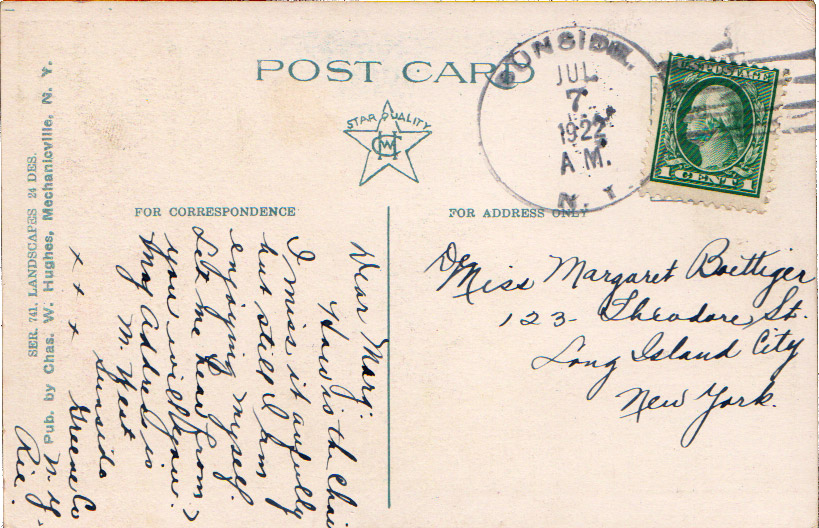 POST CARD
STAR QUALITY
CWH
SUNSIDE,
JUL
7
1922
A M.
N. Y.
U.S. POSTAGE
1 CENT 1
FOR CORRESPONDENCE
FOR ADDRESS ONLY
SER. 741. LANDSCAPES 24 DES.
Pub. by Chas. W. Hughes, Mechanicville, N. Y.
Dear Marg:
How is the chair
I miss it awfully
but still I am
enjoying myself.
Let me hear from
you will you?
May address is
M. West
Sunside
Greene Co
N. Y.
Rie.
x x x
Miss Margaret Boettiger
123- Theodore St.
Long Island City
New York.